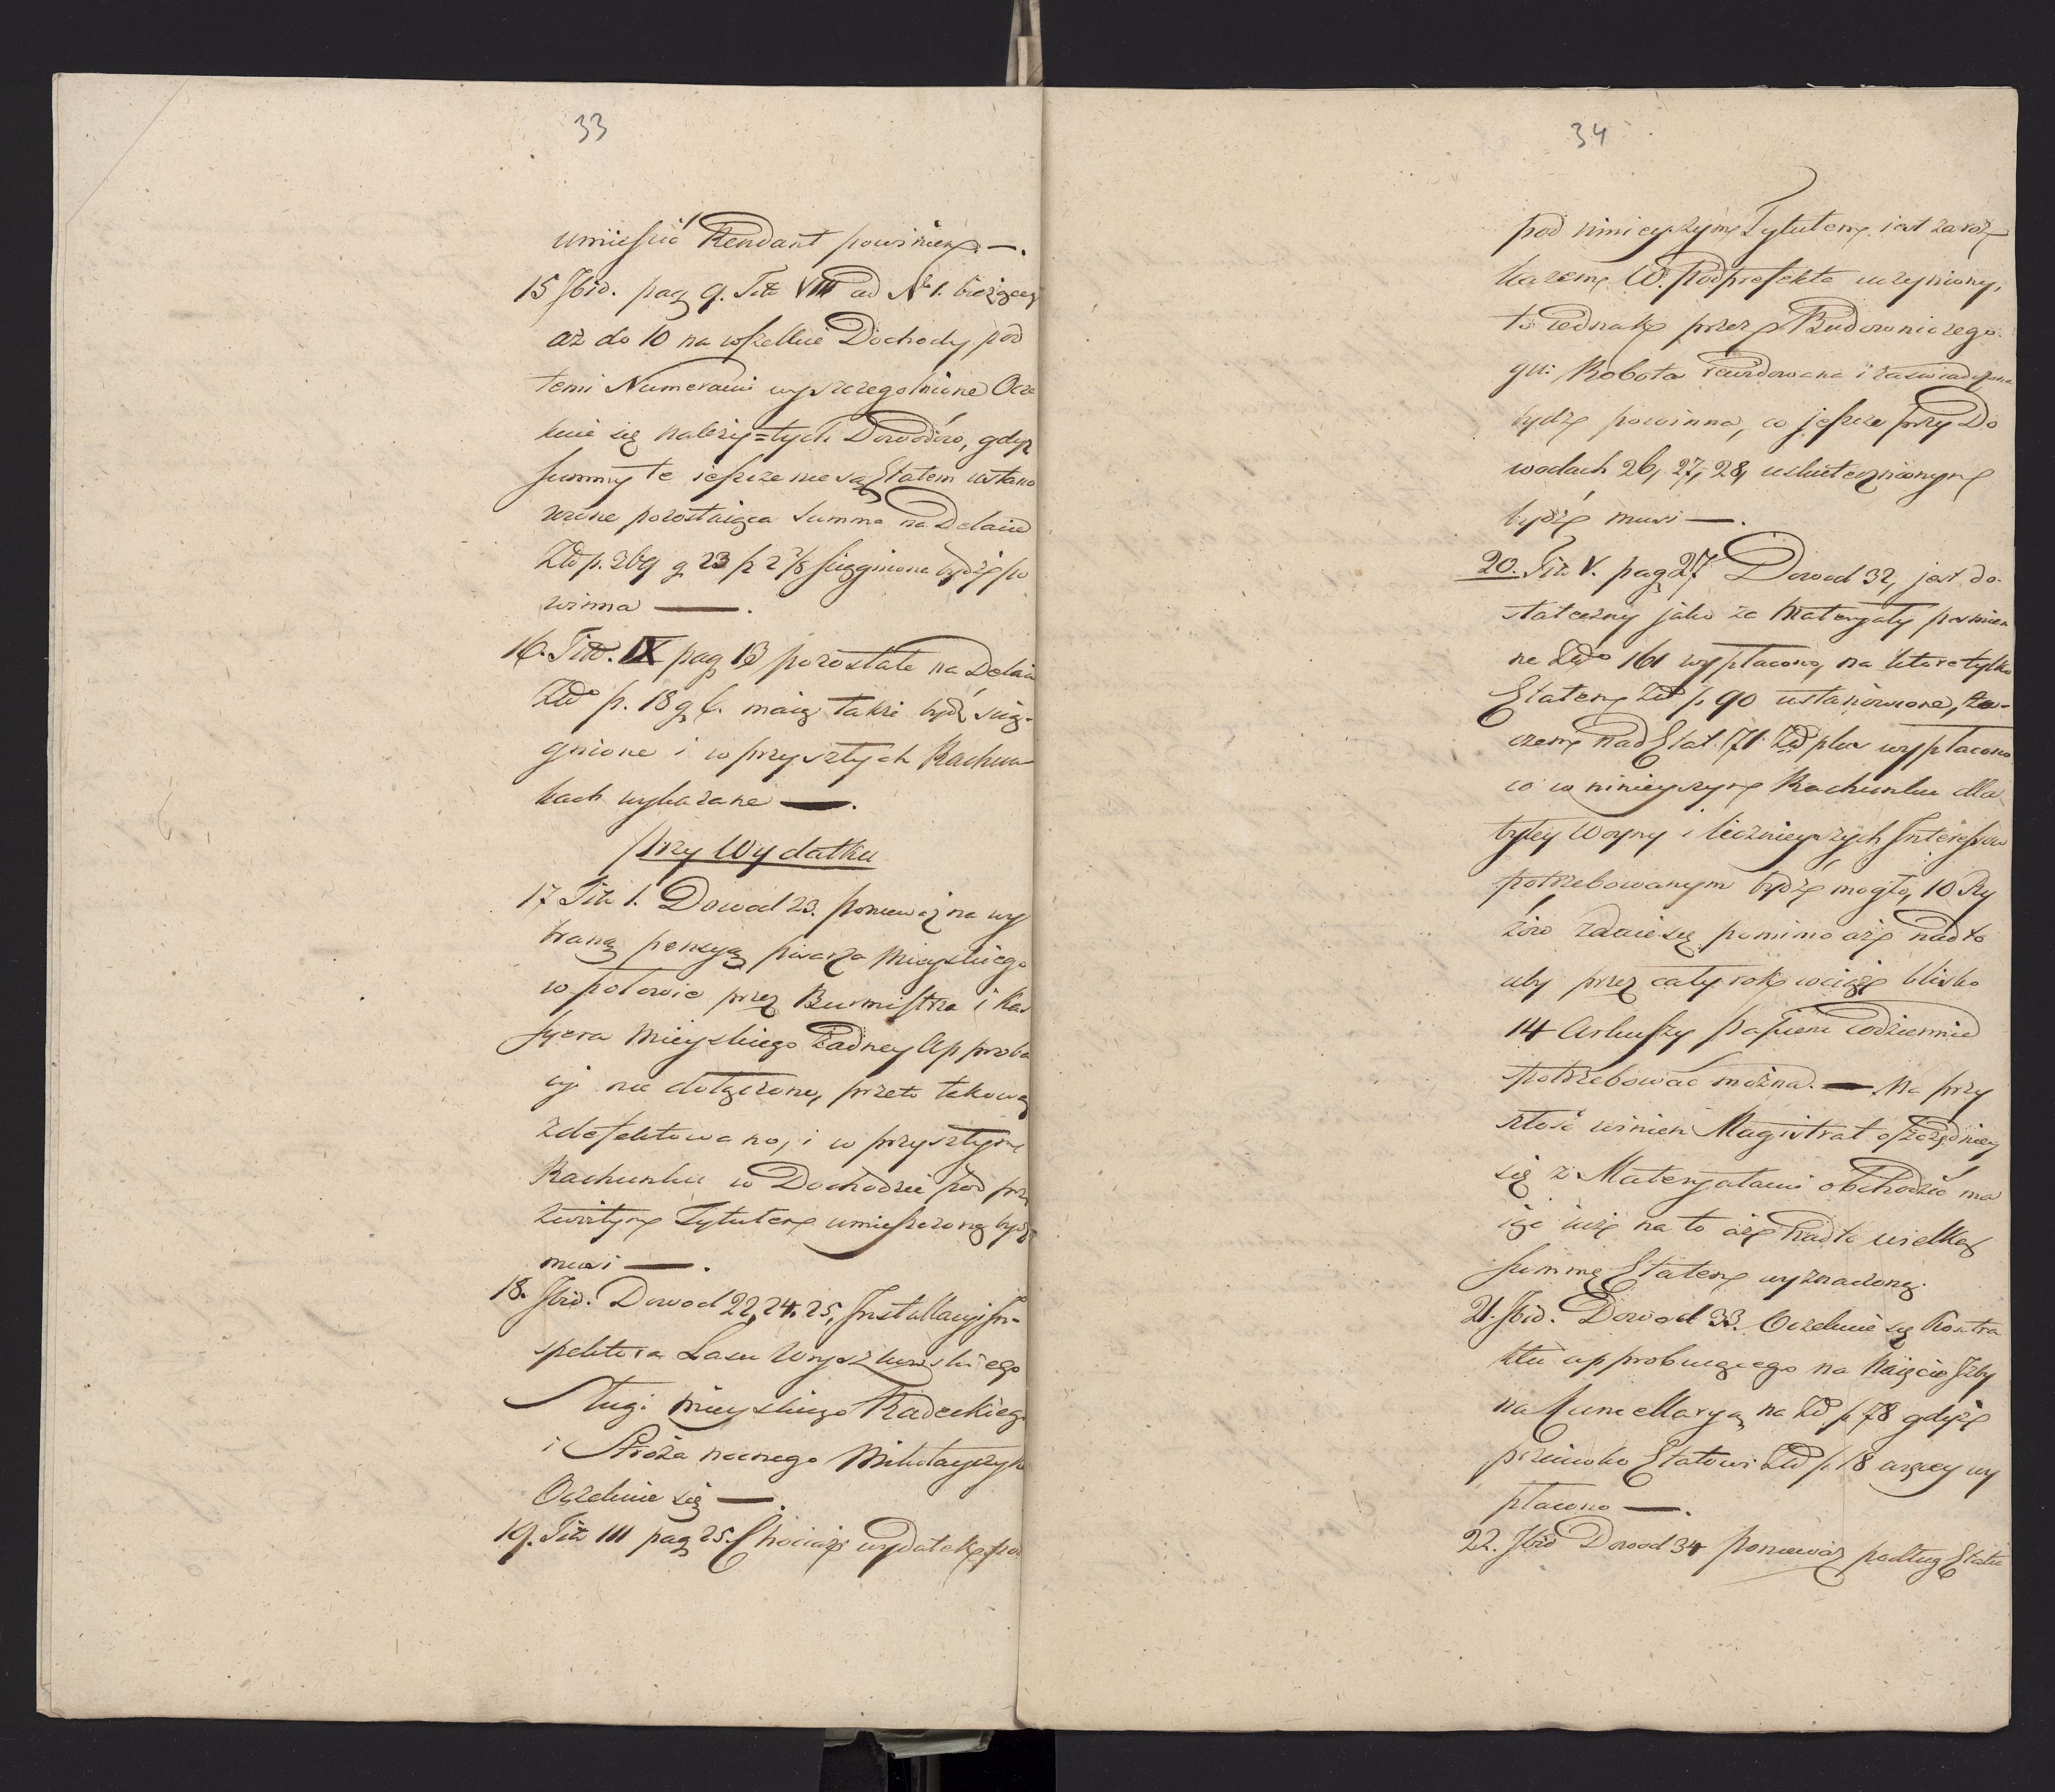 33
umieścić Rendant powinien —.
15 Ibid. pag 9. Tit VIII ad No 1. bieżącey
aż do 10 na wszelkie Dochody pod
temi Numerami wyszczegolnione Ocze
kuie się należy=tych Dowodów, gdyż
summy te ieszcze nie są Etatem ustano
wione pozostaiąca Summa na Delacie
Złl p. 269 g 23 f 2 2/8 ściągniona bydź po
winna —.
16. Titt. IX pag 13 pozostałe na Delaie
Złl p. 18 g 6. maią także bydź ścią-
gnione i w przyszłych Rachun
kach wykazane —.
przy Wydatku
17 Titt 1. Dowod 23. ponieważ na wy
braną pensyą pisarza Mieyskiego
w połowie przez Burmistrza i Kas
syera Mieyskiego Żadney Approba
cyi nie dołączono, przeto takową
zdefektowano, i w przyszłym
Rachunku w Dochodzie pod prz
zwoitym Tytułem umieszczoną bydź
musi —.
18. Ibid. Dowod 22, 24. 25, Installacyi In-
spektora Lasu Wyszkowskiego
Sługi mieyskiego Radeckiego
i Stróża nocnego Mikołayczyk
Oczekuie się —.
19. Titt III pag 25. Chociaż wydatek pod
34
pod ninieyszym Tytułem iest za roz
kazem W. Podprefekta uczyniony,
to iednak przez Budowniczego
gu: Robota rewidowana i zaświadczona
bydź powinna, co jeszcze przy Do
wodach 26, 27, 28, uskutecznionym
bydź musi —.
20. Titt V. pag 27 Dowod 32, jest do-
stateczny jako za Materyały piśmien
ne Złl 161 wypłacony, na które tylko
Etatem Złl p 90 ustanowione, za-
czem nad Etat 71 Złl plus wypłacono
co w ninieyszym Rachunku dla
byłey Woyny i licznieyszych Interessow
potrzebowanym bydź mogło, 10 Ry
zów zdaie się pomimo aż nadto
aby przez cały rok wciąż blisko
14 Arkuszy papieru codziennie
potrzebować można. — Na przy
szłość winien Magistrat oszczędniey
się z Materyałami obchodzić ma
iąc iuż na to aż nadto wielką
summę Etatem wyznaczoną.
21. Ibid. Dowod 33. Oczekuie się Kontra
ktu approbuiącego na Naięcie Izby
na Kancellaryą na Złl p 78 gdyż
przeciwko Etatowi Złl p 18 więcey wy
płacono —.
22. Ibid Dowod 34 ponieważ podług Etatu